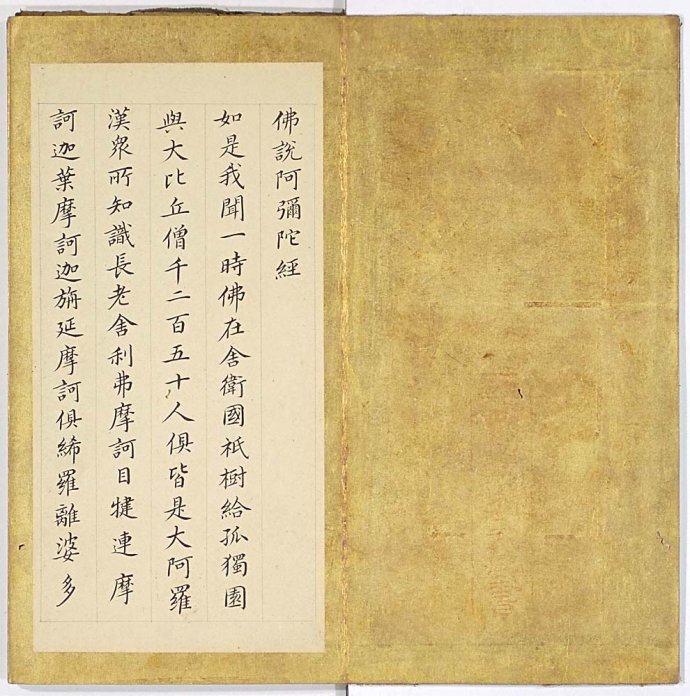 佛說阿彌陀經
如是我聞一時佛在舍衛國祇樹給孤獨園
與大比丘僧千二百五十人俱皆是大阿羅
漢眾所知識長老舍利弗摩訶目犍連摩
訶迦葉摩訶迦旃延摩訶俱絺羅離婆多